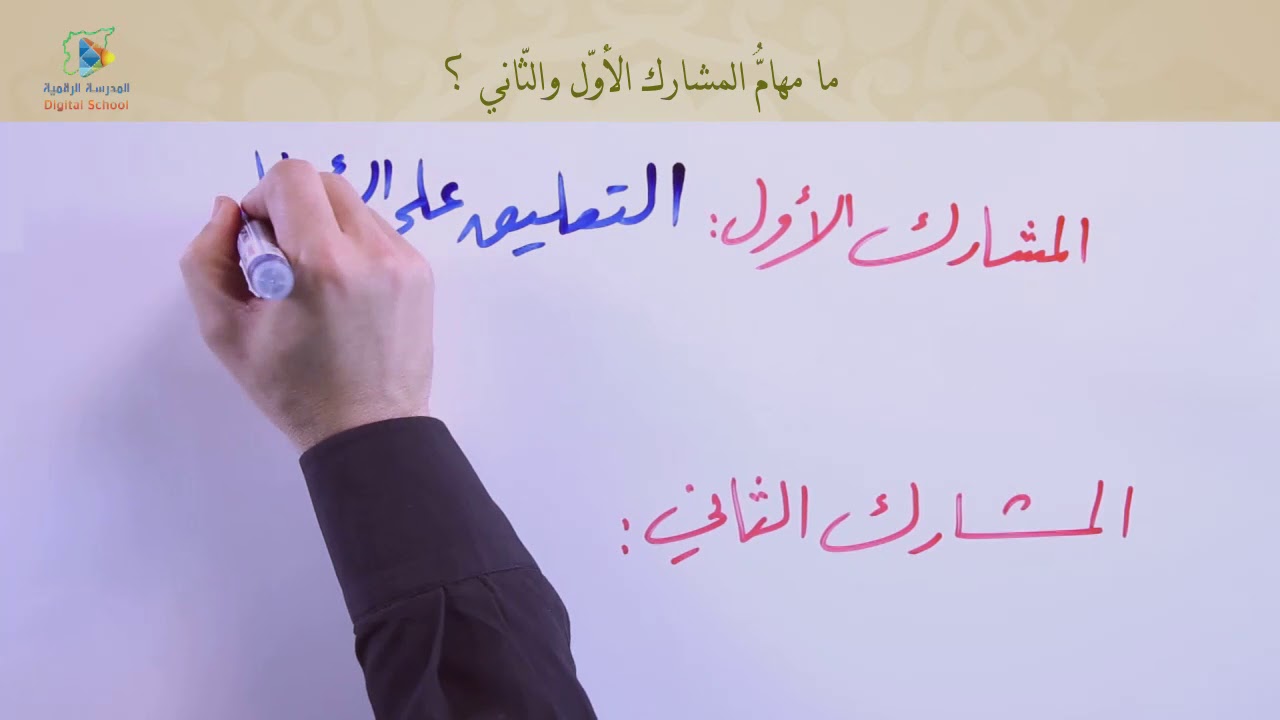 ما مهامُّ المشارك الأوّل والثّاني ؟
المدرسة الرقمية
Digital School
المشارك الأول: التعليق على
المشارك الثاني: